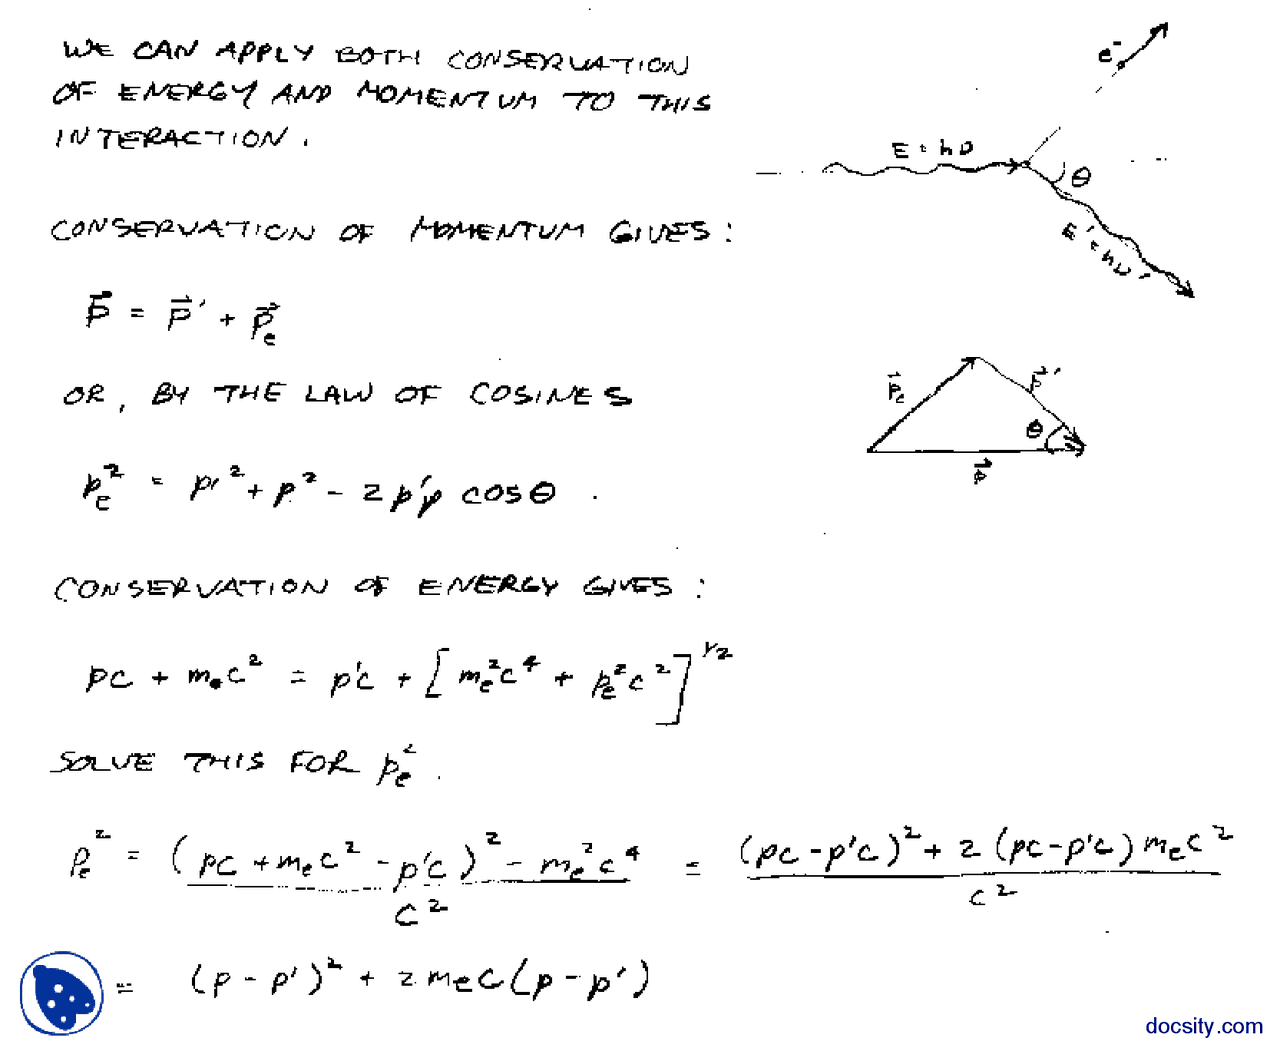 WE CAN APPLY BOTH CONSERVATION
OF ENERGY AND MOMENTUM TO THIS
INTERACTION.
e⁻
E = hν
θ
E' = hν'
CONSERVATION OF MOMENTUM GIVES:
p⃗ = p⃗' + p⃗ₑ
OR, BY THE LAW OF COSINES
p⃗ₑ
p⃗'
θ
p⃗
pₑ² = p'² + p² - 2p'p COSθ .
CONSERVATION OF ENERGY GIVES:
pc + mₑc² = p'c + [mₑ²c⁴ + pₑ²c²]^1/2
SOLVE THIS FOR pₑ².
pₑ² = (pc + mₑc² - p'c)² - mₑ²c⁴ / c² = (pc - p'c)² + 2(pc - p'c)mₑc² / c²
= (p - p')² + 2mₑc(p - p')
docsity.com